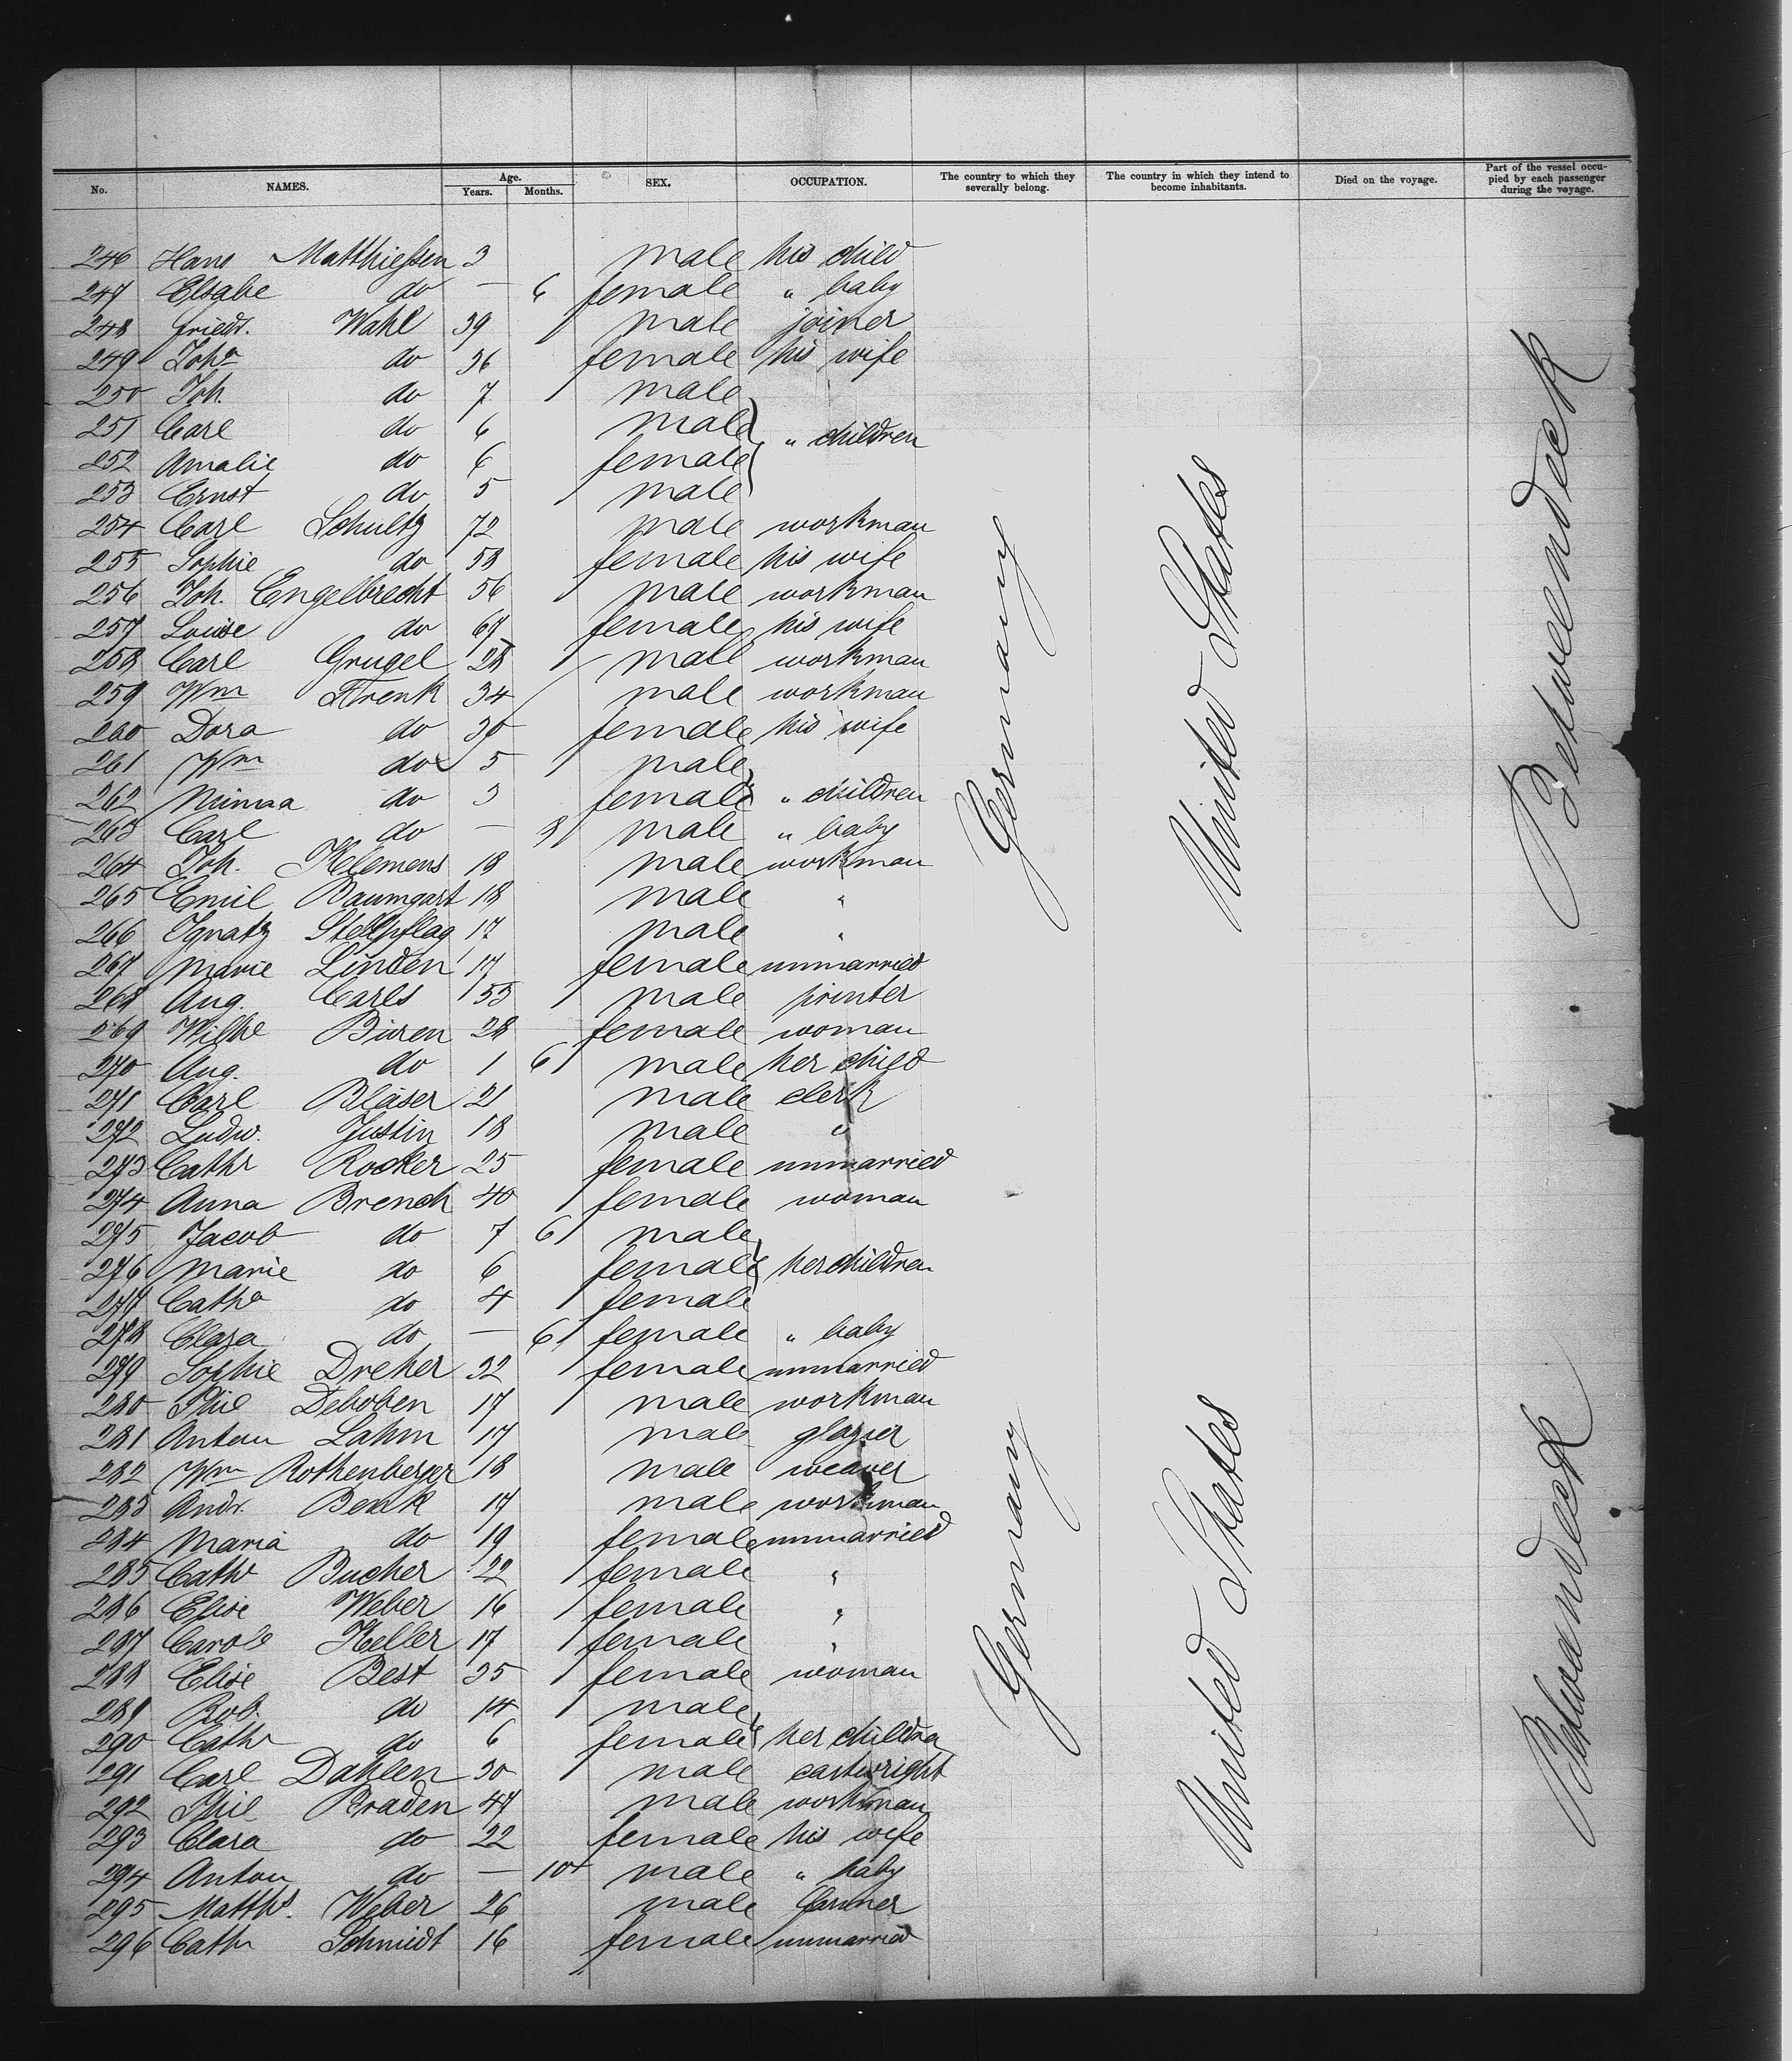 No. NAMES. Age. Years. Months. SEX. OCCUPATION. The country to which they severally belong. The country in which they intend to become inhabitants. Died on the voyage. Part of the vessel occupied by each passenger during the voyage.
246 Hans Matthießen 3 male his child
247 Elsabe do — 6 female " baby
248 Friedr. Wahl 39 male joiner
249 Joha 	do 36 female his wife
250 Joh. do 7 male
251 Carl do 6 male " children
252 Amalie do 6 female
253 Ernst do 5 male
254 Carl Schultz 72 male workman
255 Sophie do 58 female his wife
256 Joh. Engelbrecht 56 male workman
257 Louise do 67 female his wife
258 Carl Grugel 28 male workman
259 Wm Frenk 34 male workman
260 Dora do 30 female his wife
261 Wm do 5 male
262 Minna do 3 female " children
263 Carl do — 8 male " baby
264 Joh. Klemens 18 male workman
265 Emil Baumgart 18 male "
266 Ignatz Stellpflag 17 male "
267 Marie Linden 17 female unmarried
268 Aug. Carls 53 male printer
269 Wilhe Büren 28 female woman
270 Aug. do 1 6 male her child
271 Carl Bläser 21 male clerk
272 Ludw. Justin 18 male "
273 Cathr Rocker 25 female unmarried
274 Anna Brench 40 female woman
275 Jacob do 7 6 male
276 Marie do 6 female her children
277 Catha do 4 female
278 Clara do — 6 female " baby
279 Sophie Dreher 32 female unmarried
280 Phil Deboben 17 male workman
281 Anton Lahm 17 male glazier
282 Wm Rothenberger 18 male weaver
283 Andr. Benk 17 male workman
284 Maria do 19 female unmarried
285 Cathr Bucher 22 female "
286 Elise Weber 16 female "
287 Carole Keller 17 female "
288 Elise Best 35 female woman
289 Rob. do 14 male
290 Cathr do 6 female her children
291 Carl Dahlen 30 male cartwright
292 Phil Braden 47 male workman
293 Clara do 22 female his wife
294 Anton do — 10 male " baby
295 Matths. Weber 26 male farmer
296 Cathr Schmidt 16 female unmarried
Germany
United States
Betweendeck
Germany
United States
Betweendeck